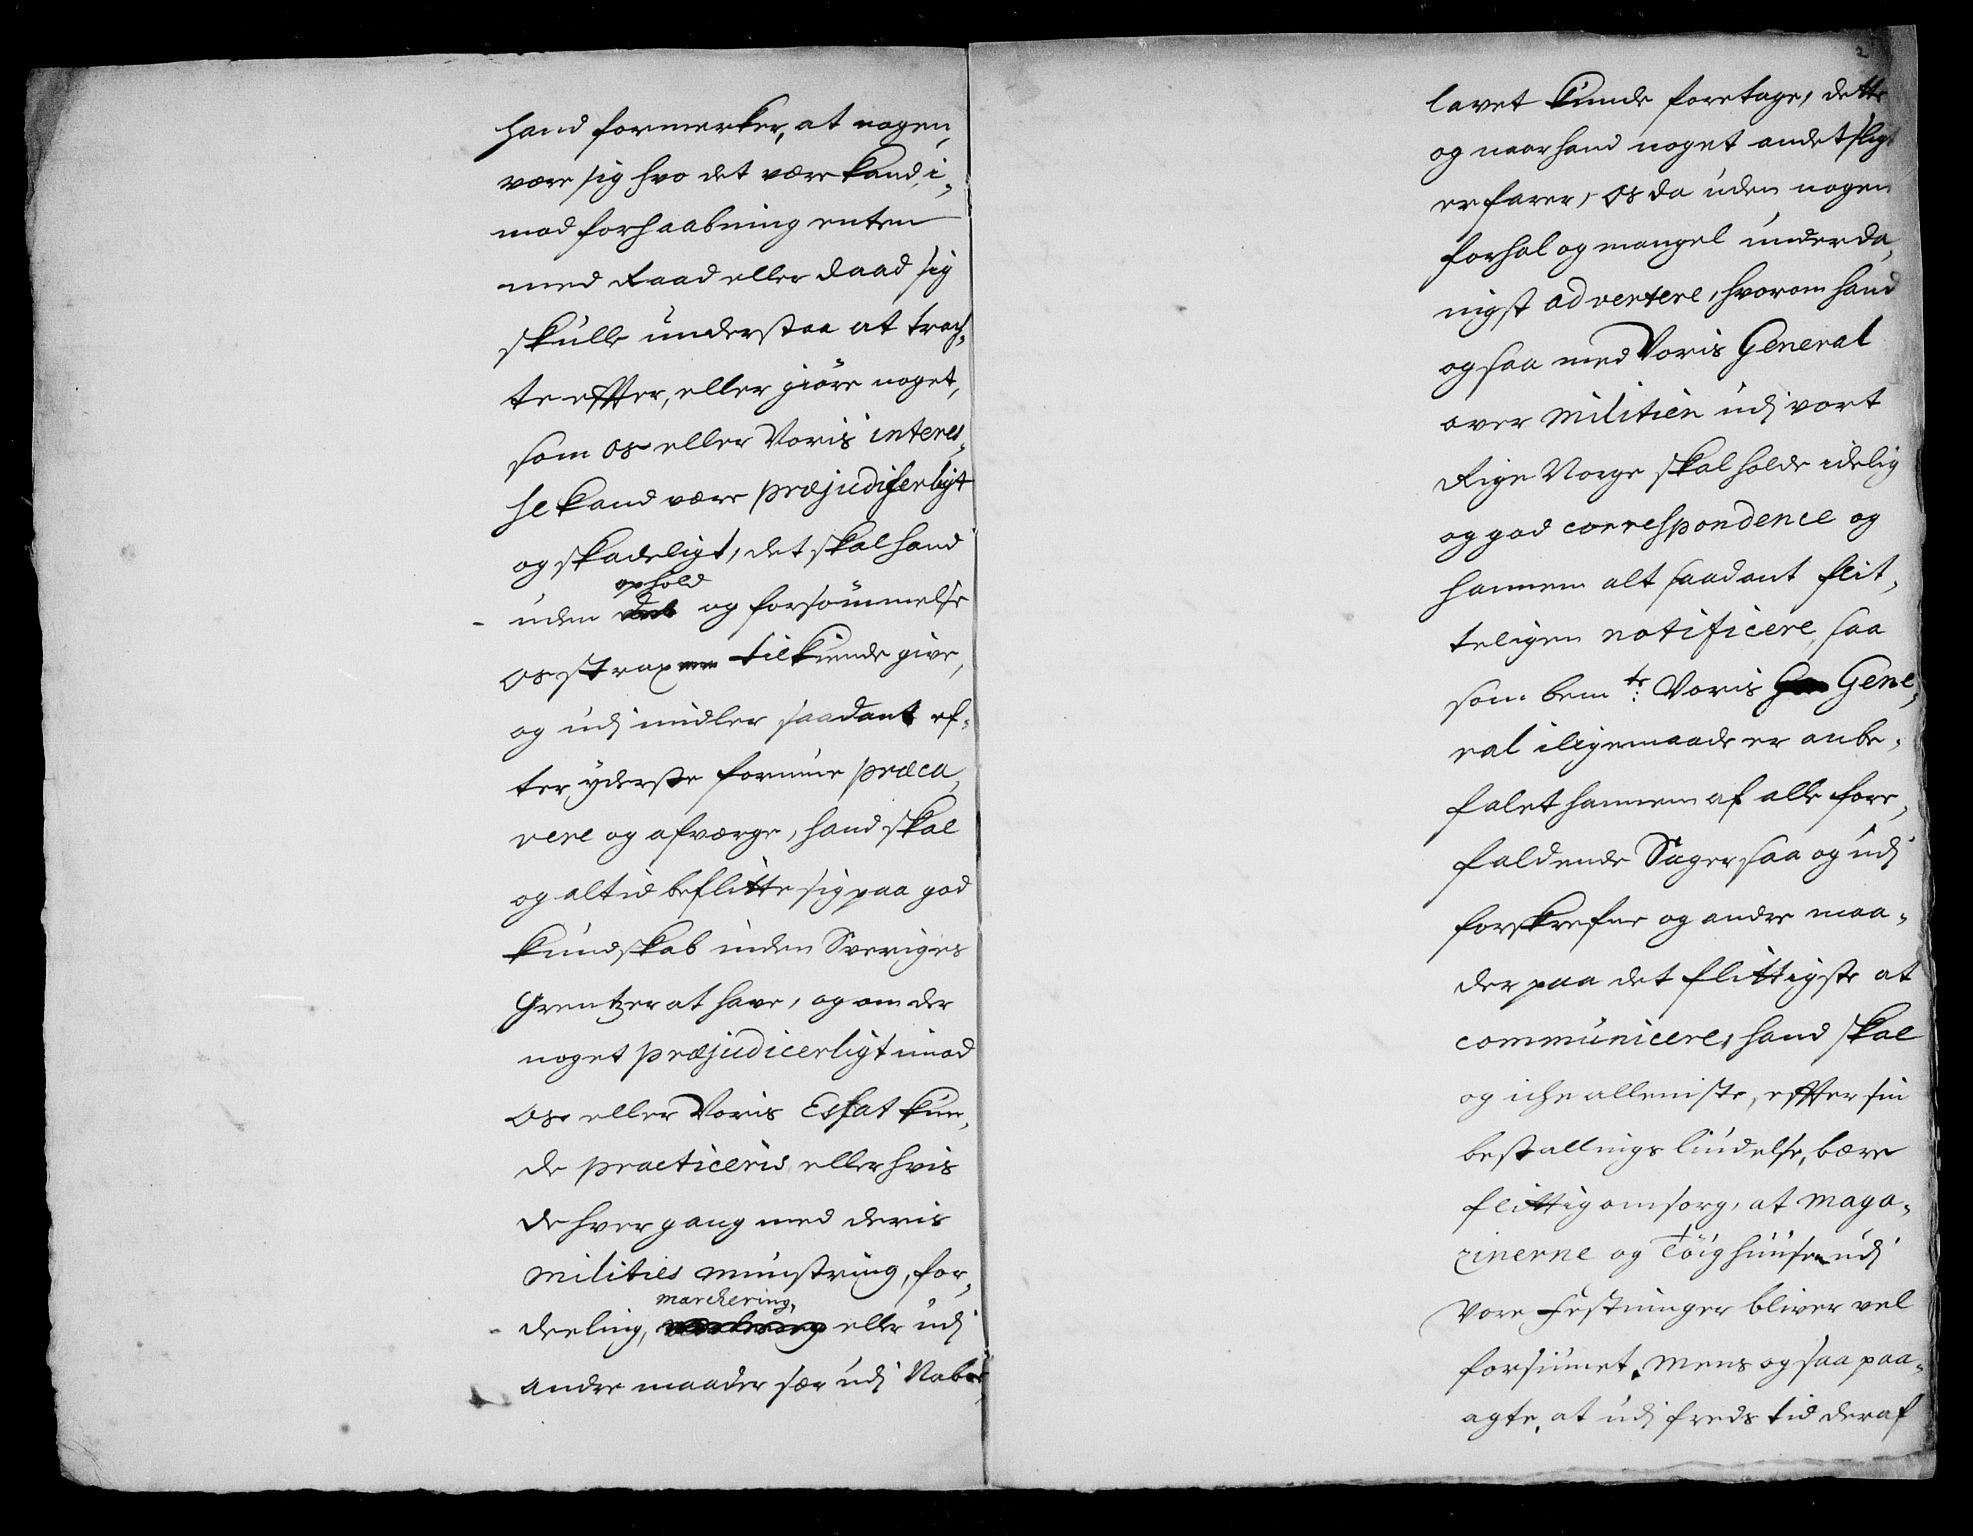 hand formerker, at nogen,
være sig hvo det være kand, i-
mod forhaabning enten
med Raad eller daad sig
skulle understaa at trach-
te effter, eller giöre noget,
som os eller Voris interes-
se kand være præjudicerligt
og skadeligt, det skal hand
ophold
uden og forsömmelse
os strax tilkiende give,
og udj midler saadant ef-
ter yderste formue præca-
vere og afværge, hand skal
og altid beflitte sig paa god
kundskab inden Sveriges
Grentzer at have, og om der
noget præjudicerligt imod
os eller Voris Estat kun-
de practiceris eller hvis
de hver gang med deris
milities munstring, for-
marchering,
deeling, eller udj
andre maader sær udj Nabo-
2
lavet kunde foretage, dette
og naar hand noget andet slig
erfarer, os da uden nogen
forhal og mangel underda-
nigst advertere, hvorom hand
og saa med Voris General
over militien udj vort
Rige Norge skal holde idelig
og god correspondence og
hannem alt saadant flit-
teligen notificere, saa
som bem.te Voris Gene-
ral iligemaade er anbe-
falet hannem af alle fore-
faldende Sager saa og udj
forskrefne og andre maa-
der paa det flittigste at
communicere, hand skal
og iche alleniste, effter sin
bestallings liudelse, bære
flittig omsorg, at maga-
zinerne og Töighuusen udj
Vore Festninger bliver vel
forsiunet, mens og saa paa-
agte, at udj freds tid deraf